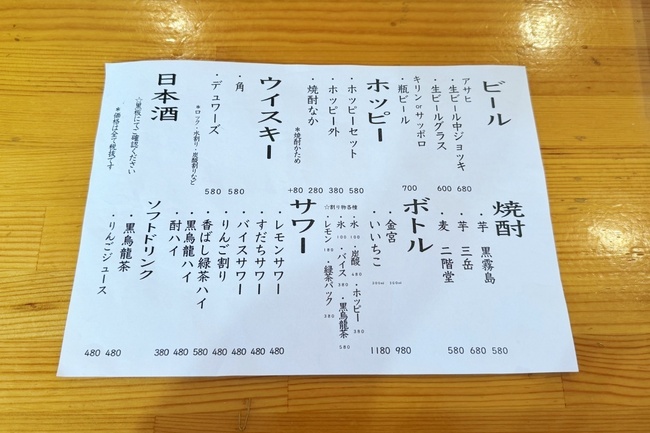 ビール
アサヒ
・生ビール中ジョッキ 680
・生ビールグラス 600
キリンorサッポロ
・瓶ビール 700
ホッピー
・ホッピーセット 580
・ホッピー外 380
・焼酎なか 280
*焼酎かため +80
ウイスキー
・角 580
・デュワーズ 580
*ロック・水割り・炭酸割りなど
日本酒
☆黒板にてご確認ください
*価格は全て税抜です
焼酎
・芋 黒霧島 580
・芋 三岳 680
・麦 二階堂 580
ボトル
・金宮 980
・いいちこ 1180
☆割り物各種
・水 100 ・炭酸 480 ・ホッピー 380
・氷 100 ・バイス 380 ・黒烏龍茶 580
・レモン 180 ・緑茶パック 380
サワー
・レモンサワー 480
・すだちサワー 480
・バイスサワー 480
・りんご割り 480
・香ばし緑茶ハイ 580
・黒烏龍ハイ 480
・酎ハイ 380
ソフトドリンク
・黒烏龍茶 480
・りんごジュース 480